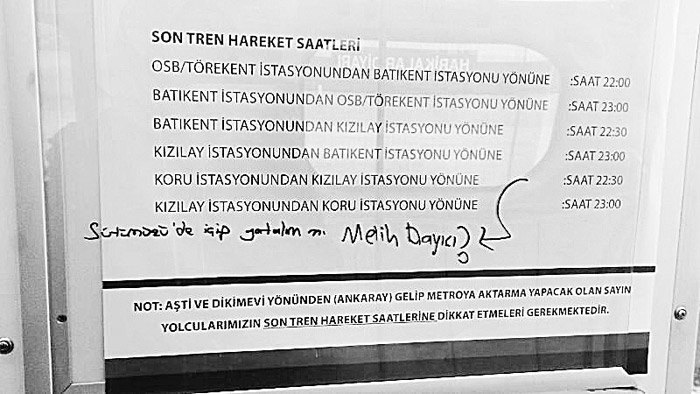 SON TREN HAREKET SAATLERİ
OSB/TÖREKENT İSTASYONUNDAN BATIKENT İSTASYONU YÖNÜNE :SAAT 22:00
BATIKENT İSTASYONUNDAN OSB/TÖREKENT İSTASYONU YÖNÜNE :SAAT 23:00
BATIKENT İSTASYONUNDAN KIZILAY İSTASYONU YÖNÜNE :SAAT 22:30
KIZILAY İSTASYONUNDAN BATIKENT İSTASYONU YÖNÜNE :SAAT 23:00
KORU İSTASYONUNDAN KIZILAY İSTASYONU YÖNÜNE :SAAT 22:30
KIZILAY İSTASYONUNDAN KORU İSTASYONU YÖNÜNE :SAAT 23:00
Sütümüzü'de içip yatalım mı Melih Dayıcım?
NOT: AŞTİ VE DİKİMEVİ YÖNÜNDEN (ANKARAY) GELİP METROYA AKTARMA YAPACAK OLAN SAYIN
YOLCULARIMIZIN SON TREN HAREKET SAATLERİNE DİKKAT ETMELERİ GEREKMEKTEDİR.